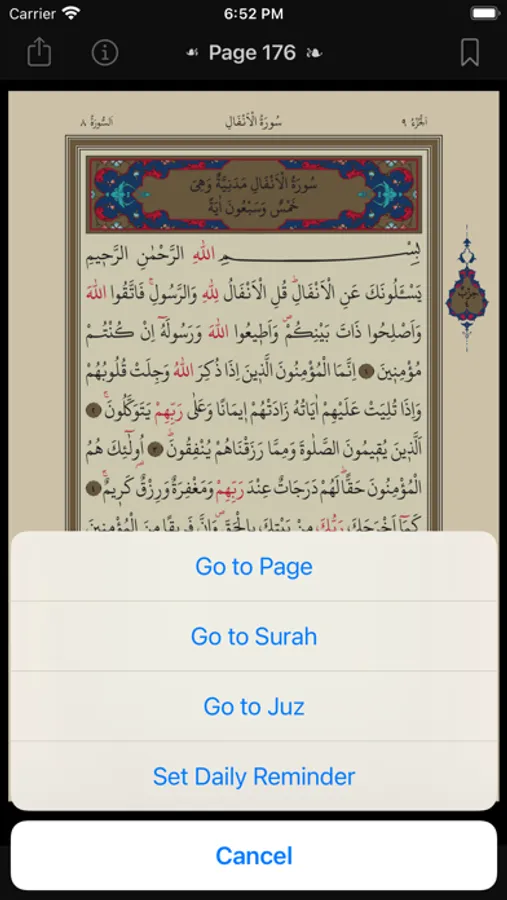 Carrier 6:52 PM
Page 176
الجُزْءُ ٩ سُورَةُ الْاَنْفَالِ اَلسُّورَةُ ٨
سُورَةُ الْاَنْفَالِ مَدَنِيَّةٌ وَهِىَ
خَمْسٌ وَسَبْعُونَ اٰيَةً
بِسْــــمِ اللّٰهِ الرَّحْمٰنِ الرَّحِيمِ
يَسْـَٔلُونَكَ عَنِ الْاَنْفَالِۜ قُلِ الْاَنْفَالُ لِلّٰهِ وَالرَّسُولِۚ فَاتَّقُوا اللّٰهَ
وَاَصْلِحُوا ذَاتَ بَيْنِكُمْۖ وَاَطِيعُوا اللّٰهَ وَرَسُولَهُٓ اِنْ كُنْتُمْ
مُؤْمِنِينَ ١ اِنَّمَا الْمُؤْمِنُونَ الَّذِينَ اِذَا ذُكِرَ اللّٰهُ وَجِلَتْ قُلُوبُهُمْ
وَاِذَا تُلِيَتْ عَلَيْهِمْ اٰيَاتُهُ زَادَتْهُمْ اِيمَانًا وَعَلٰى رَبِّهِمْ يَتَوَكَّلُونَۚ ٢
اَلَّذِينَ يُقِيمُونَ الصَّلٰوةَ وَمِمَّا رَزَقْنَاهُمْ يُنْفِقُونَۜ ٣ اُولٰٓئِكَ هُمُ
الْمُؤْمِنُونَ حَقًّاۜ لَهُمْ دَرَجَاتٌ عِنْدَ رَبِّهِمْ وَمَغْفِرَةٌ وَرِزْقٌ كَرِيمٌۚ ٤
كَمَٓا اَخْرَجَكَ رَبُّكَ مِنْ بَيْتِكَ بِالْحَقِّۖ وَاِنَّ فَرِيقًا مِنَ الْمُؤْمِنِينَ
حِزْبٌ
Go to Page
Go to Surah
Go to Juz
Set Daily Reminder
Cancel